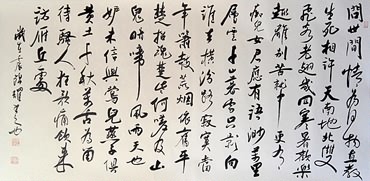 問世間情為何物直教
生死相許天南地北雙
飛客老翅幾回寒暑歡樂
趣離別苦就中更有
痴兒女君應有語渺萬里
層雲千山暮雪只影向
誰去橫汾路寂寞當
年簫鼓荒煙依舊平
楚招魂楚些何嗟及山
鬼暗啼風雨天也
妒未信與鶯兒燕子俱
黃土千秋萬古為留
待騷人狂歌痛飲來
訪雁丘處